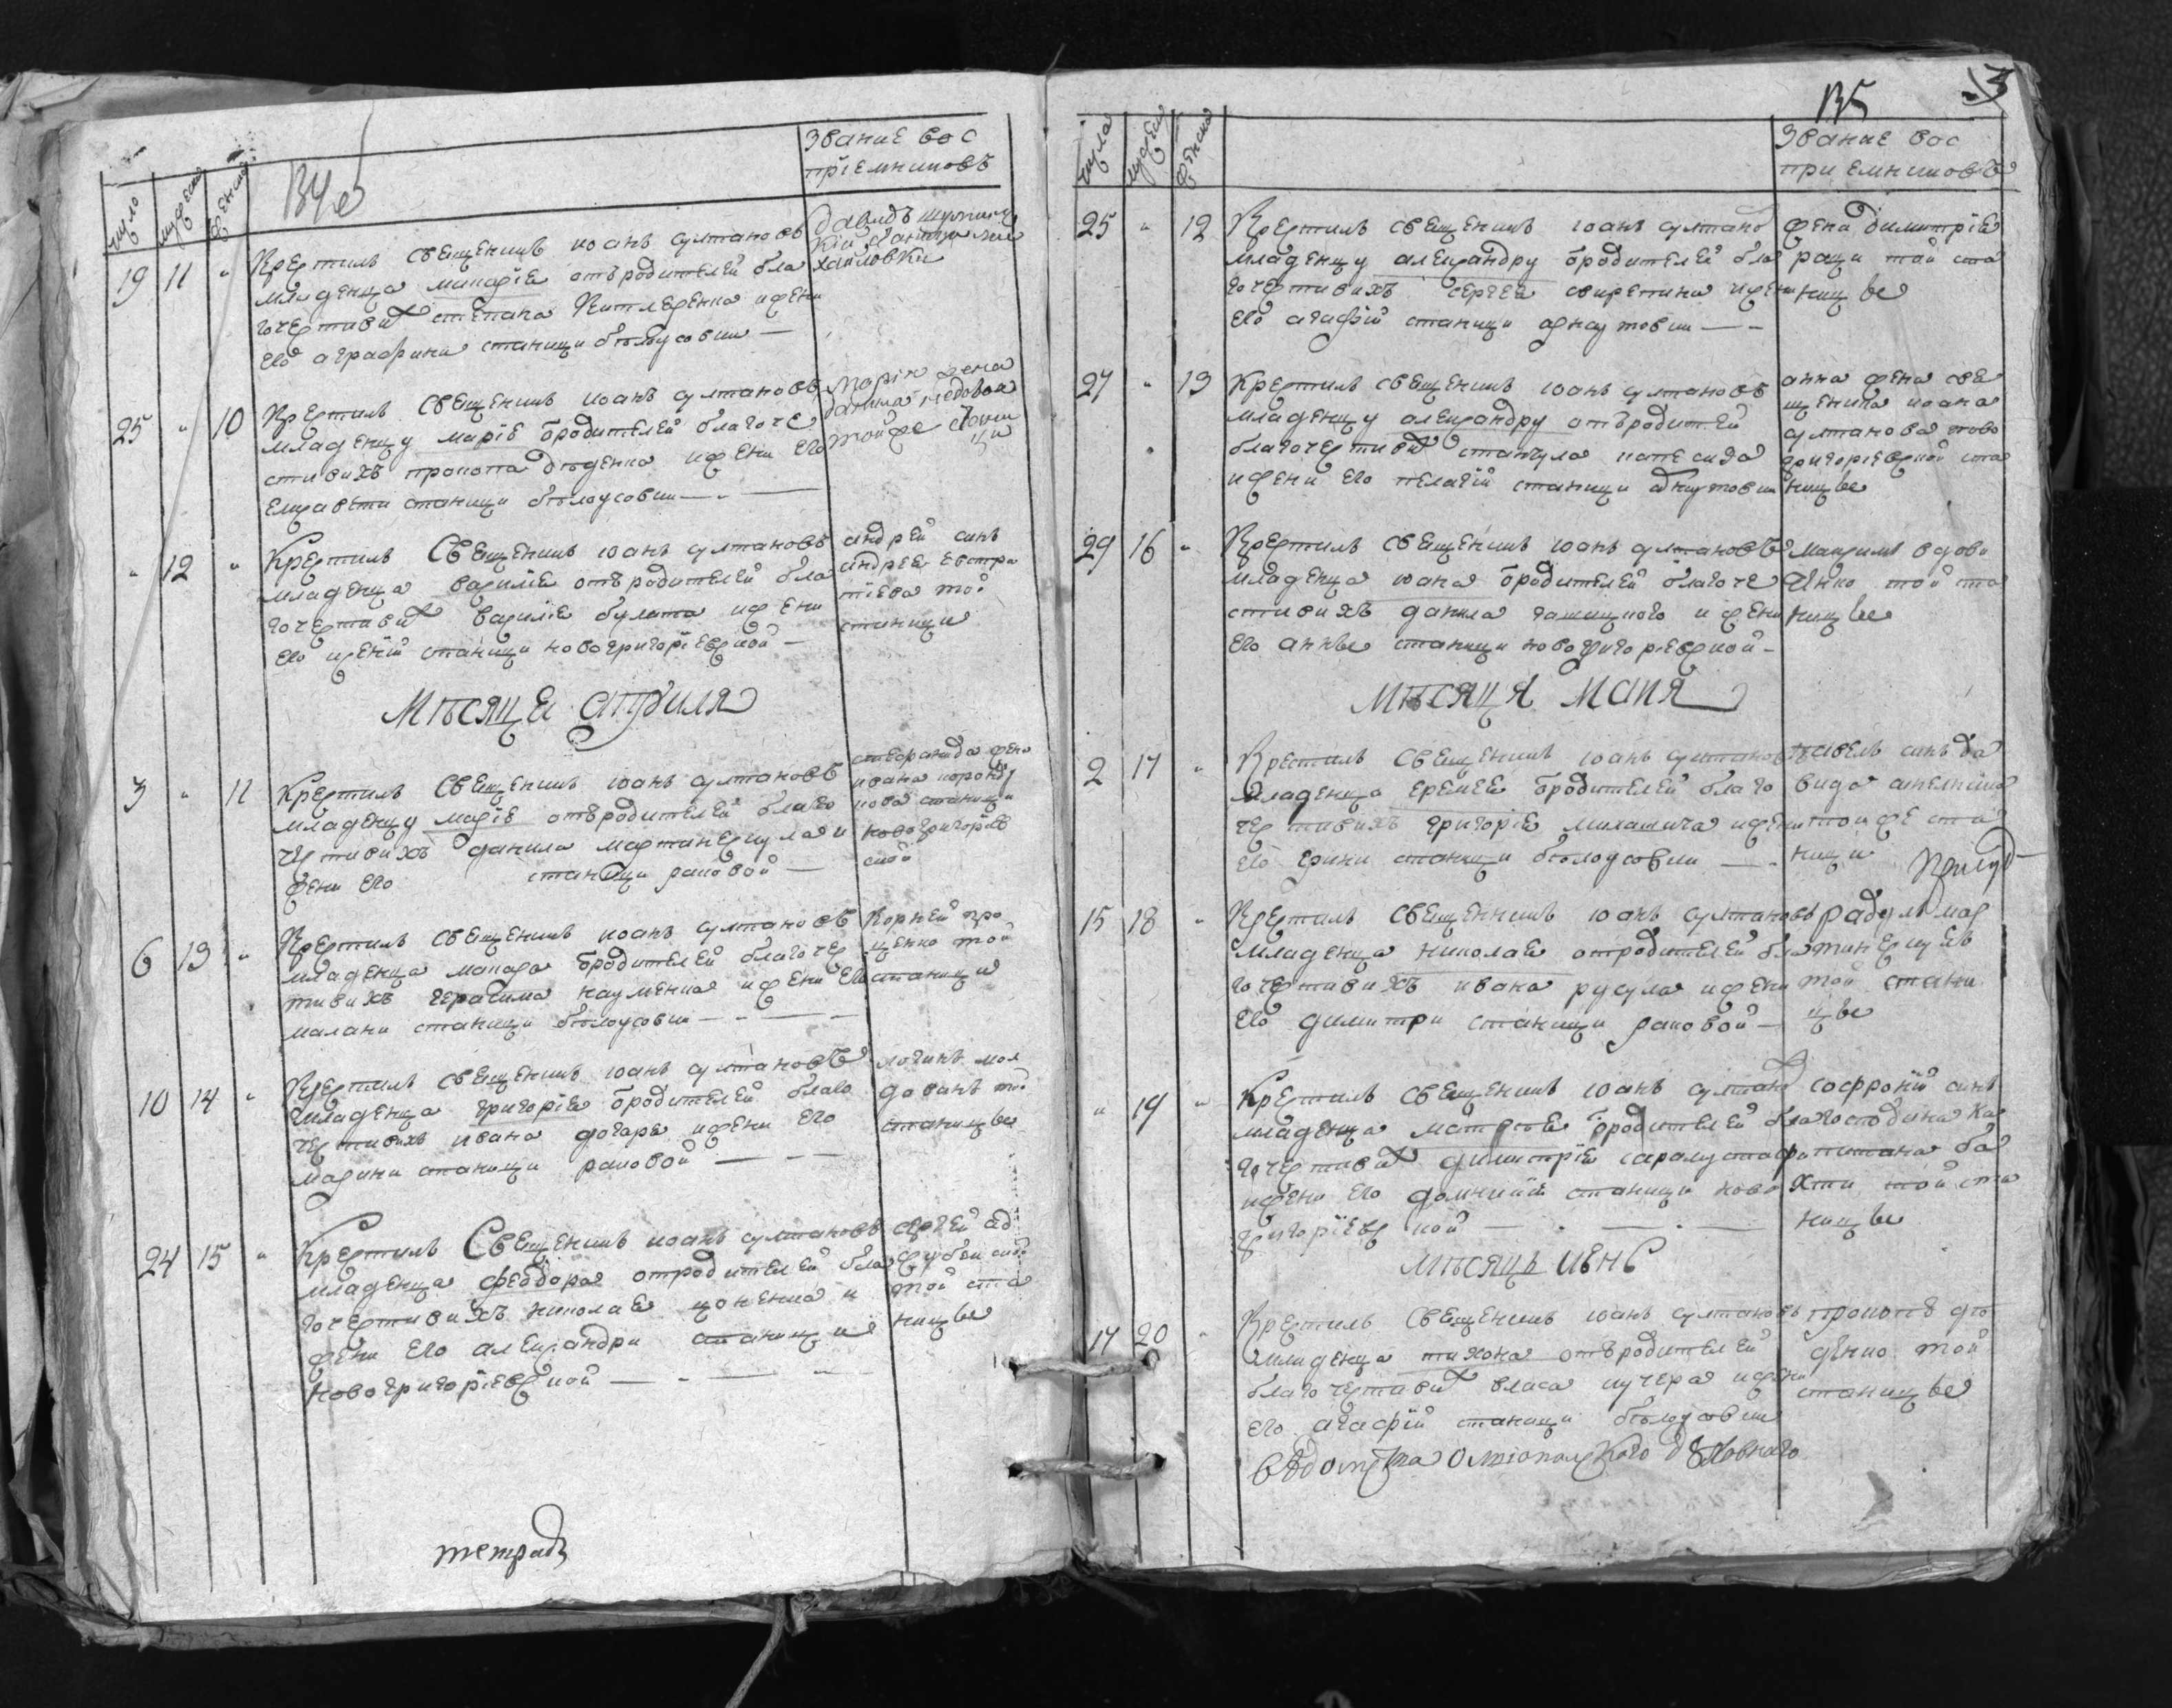 134
звание вос
пріемниковъ
число
мужеска
женска
19 11 "
Крестилъ священникъ иоанъ султановъ
младенца макаріе отъ родителей бла
гочестивих степана
его аграфини станици бѣлоусовки —
Давидъ
хайловки
25 " 10
Крестилъ священникъ иоанъ султановъ
младенцу маріе ѿродителей благоче
стивихъ прокопа дѣденка и жени его
елисавети станици бѣлоусовки —
Марія жена
данила
тойже стани
ци
" 12 "
Крестилъ священникъ иоанъ султановъ
младенца василіе отъ родителей бла
гочестивих василіе булата и жени
его ксеніи станици новогригоріевской —
андрей синъ
андрея евстра
тіева той
станици
мѣсяце априля
3 " 11
Крестилъ священникъ иоанъ султановъ
младенцу маріе отъ родителей благо
честивихъ данила мартинескула и
жени его станици раковой —
стефанида жена
ивана
станици
новогригоріев
ской
6 13 "
Крестилъ священникъ иоанъ султановъ
младенца макара ѿродителей благочес
тивихъ герасима науменка и жени его
малани станици бѣлоусовки —
Корней про
ценко той
станици
10 14 "
Крестилъ священникъ иоанъ султановъ
младенца григоріе ѿродителей благо
честивихъ ивана догаря и жени его
марини станици раковой —
логинъ мол
дованъ той
станицѣ
24 15 "
Крестилъ священникъ иоанъ султановъ
младенца феодора отродителей бла
гочестивихъ николае цоненка и
жени его александри станици
новогригоріевской —
сергей
той ста
ницѣ
тетрадь
135
число
мужеска
женска
звание вос
приемниковъ
25 " 12
Крестилъ священникъ иоанъ султано
младенцу александру ѿродителей бла
гочестивихъ сергея свиретина и жени
его агафіи станици арнаутовки —
жена димитріе
раци той ста
ницѣ
27 " 13
Крестилъ священникъ иоанъ султановъ
младенцу александру отъродителей
благочестивих станчула
и жени его пелагіи станици арнаутовки
анна жена све
щеника иоана
султанова ново
григоріевской ста
ницѣ
29 16 "
Крестилъ священникъ иоанъ султановъ
младенца иоана ѿродителей благоче
стивихъ данила и жени
его аннѣ станици новогригоріевской —
Максимъ вдови
ченко той ста
ницѣ
мѣсяця маия
2 17 "
Крестилъ священникъ иоанъ султановъ
младенца еремея ѿродителей благо
честивихъ григоріе милашича и жени
его ирини станици бѣлоусовки —
синъ да
вида
тойже ста
ници
15 18 "
Крестилъ священникъ иоанъ султановъ
младенца николае отродителей бла
гочестивихъ ивана русула и жени
его димитри станици раковой —
радулъ мар
тинескулъ
той стани
цѣ
" 19 "
Крестилъ священникъ иоанъ султано
младенца матфѣе ѿродителей бла
гочестивих димитріе
и жени его домникіи станици ново
григоріевской —
софроній синъ
господина ка
питана ба
хти той ста
ницѣ
мѣсяць июнь
17 20 "
Крестилъ священникъ иоанъ султановъ
младенца тихона отъродителей
благочестивих власа кучера и жени
его агафіи станици бѣлоусовки
прокопъ дѣ
денко той
станицѣ